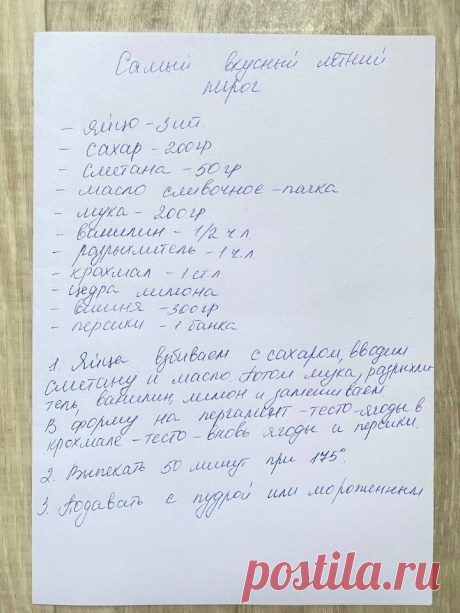 Самый вкусный летний
пирог
- яйцо - 3 шт
- сахар - 200гр
- сметана - 50гр
- масло сливочное - пачка
- мука - 200гр
- ванилин - 1/2 ч.л
- разрыхлитель - 1 ч.л.
- крахмал - 1 ст.л
- цедра лимона
- вишня - 300гр
- персики - 1 банка
1. Яйца взбиваем с сахаром, вводим
сметану и масло. Потом мука, разрыхли-
тель, ванилин, лимон и замешиваем.
В форму на пергамент - тесто - ягоды в
крохмале - тесто - вновь ягоды и персики.
2. Выпекать 50 минут при 175°.
3. Подавать с пудрой или мороженным
postila.ru